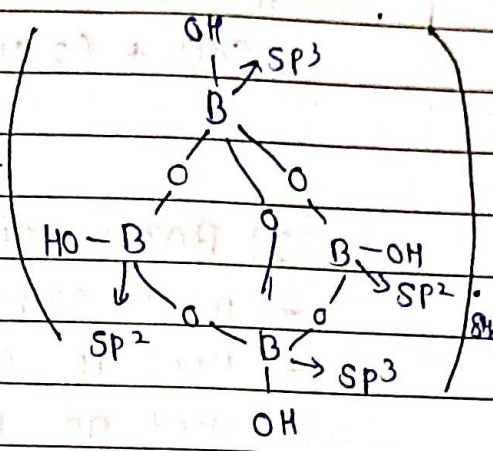 OH
Sp3
B
O O
O
HO - B B - OH
Sp2
Sp2
O O
B Sp3
OH